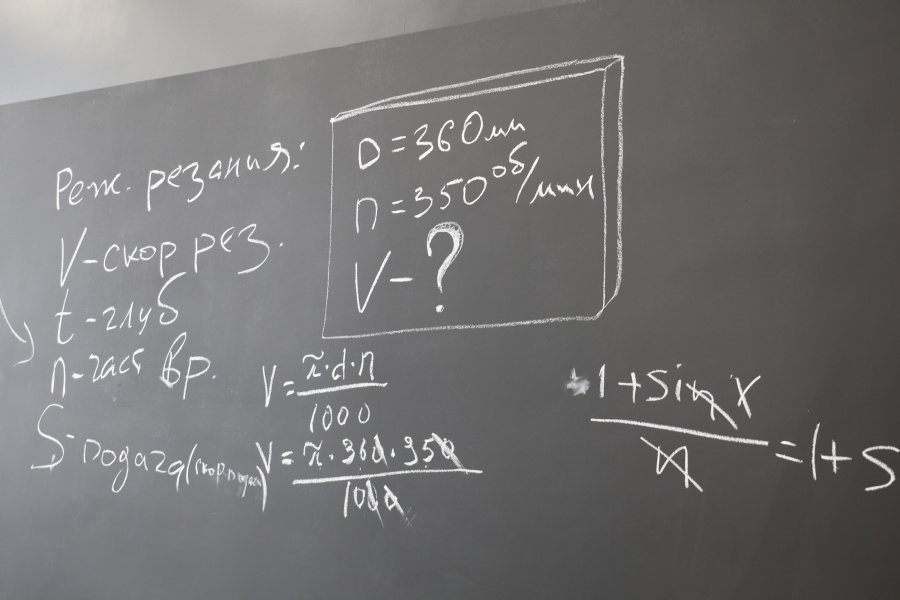 Реж. резания:
V-скор рез.
t-глуб
n-част вр.
S-подача(скор подачи)
D=360мм
n=350об/мин
V-?
V=π·d·n
1000
V=π·360·350
1000
1+sin x
n
=1+s